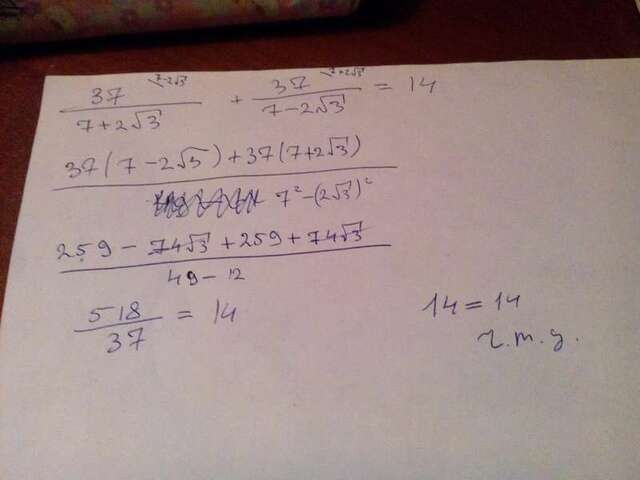 37^(7-2√3 / 7+2√3 + 37^(7+2√3 / 7-2√3 = 14
37(7-2√3)+37(7+2√3) / 7²-(2√3)²
259-74√3+259+74√3 / 49-12
518 / 37 = 14
14=14
ч.т.д.